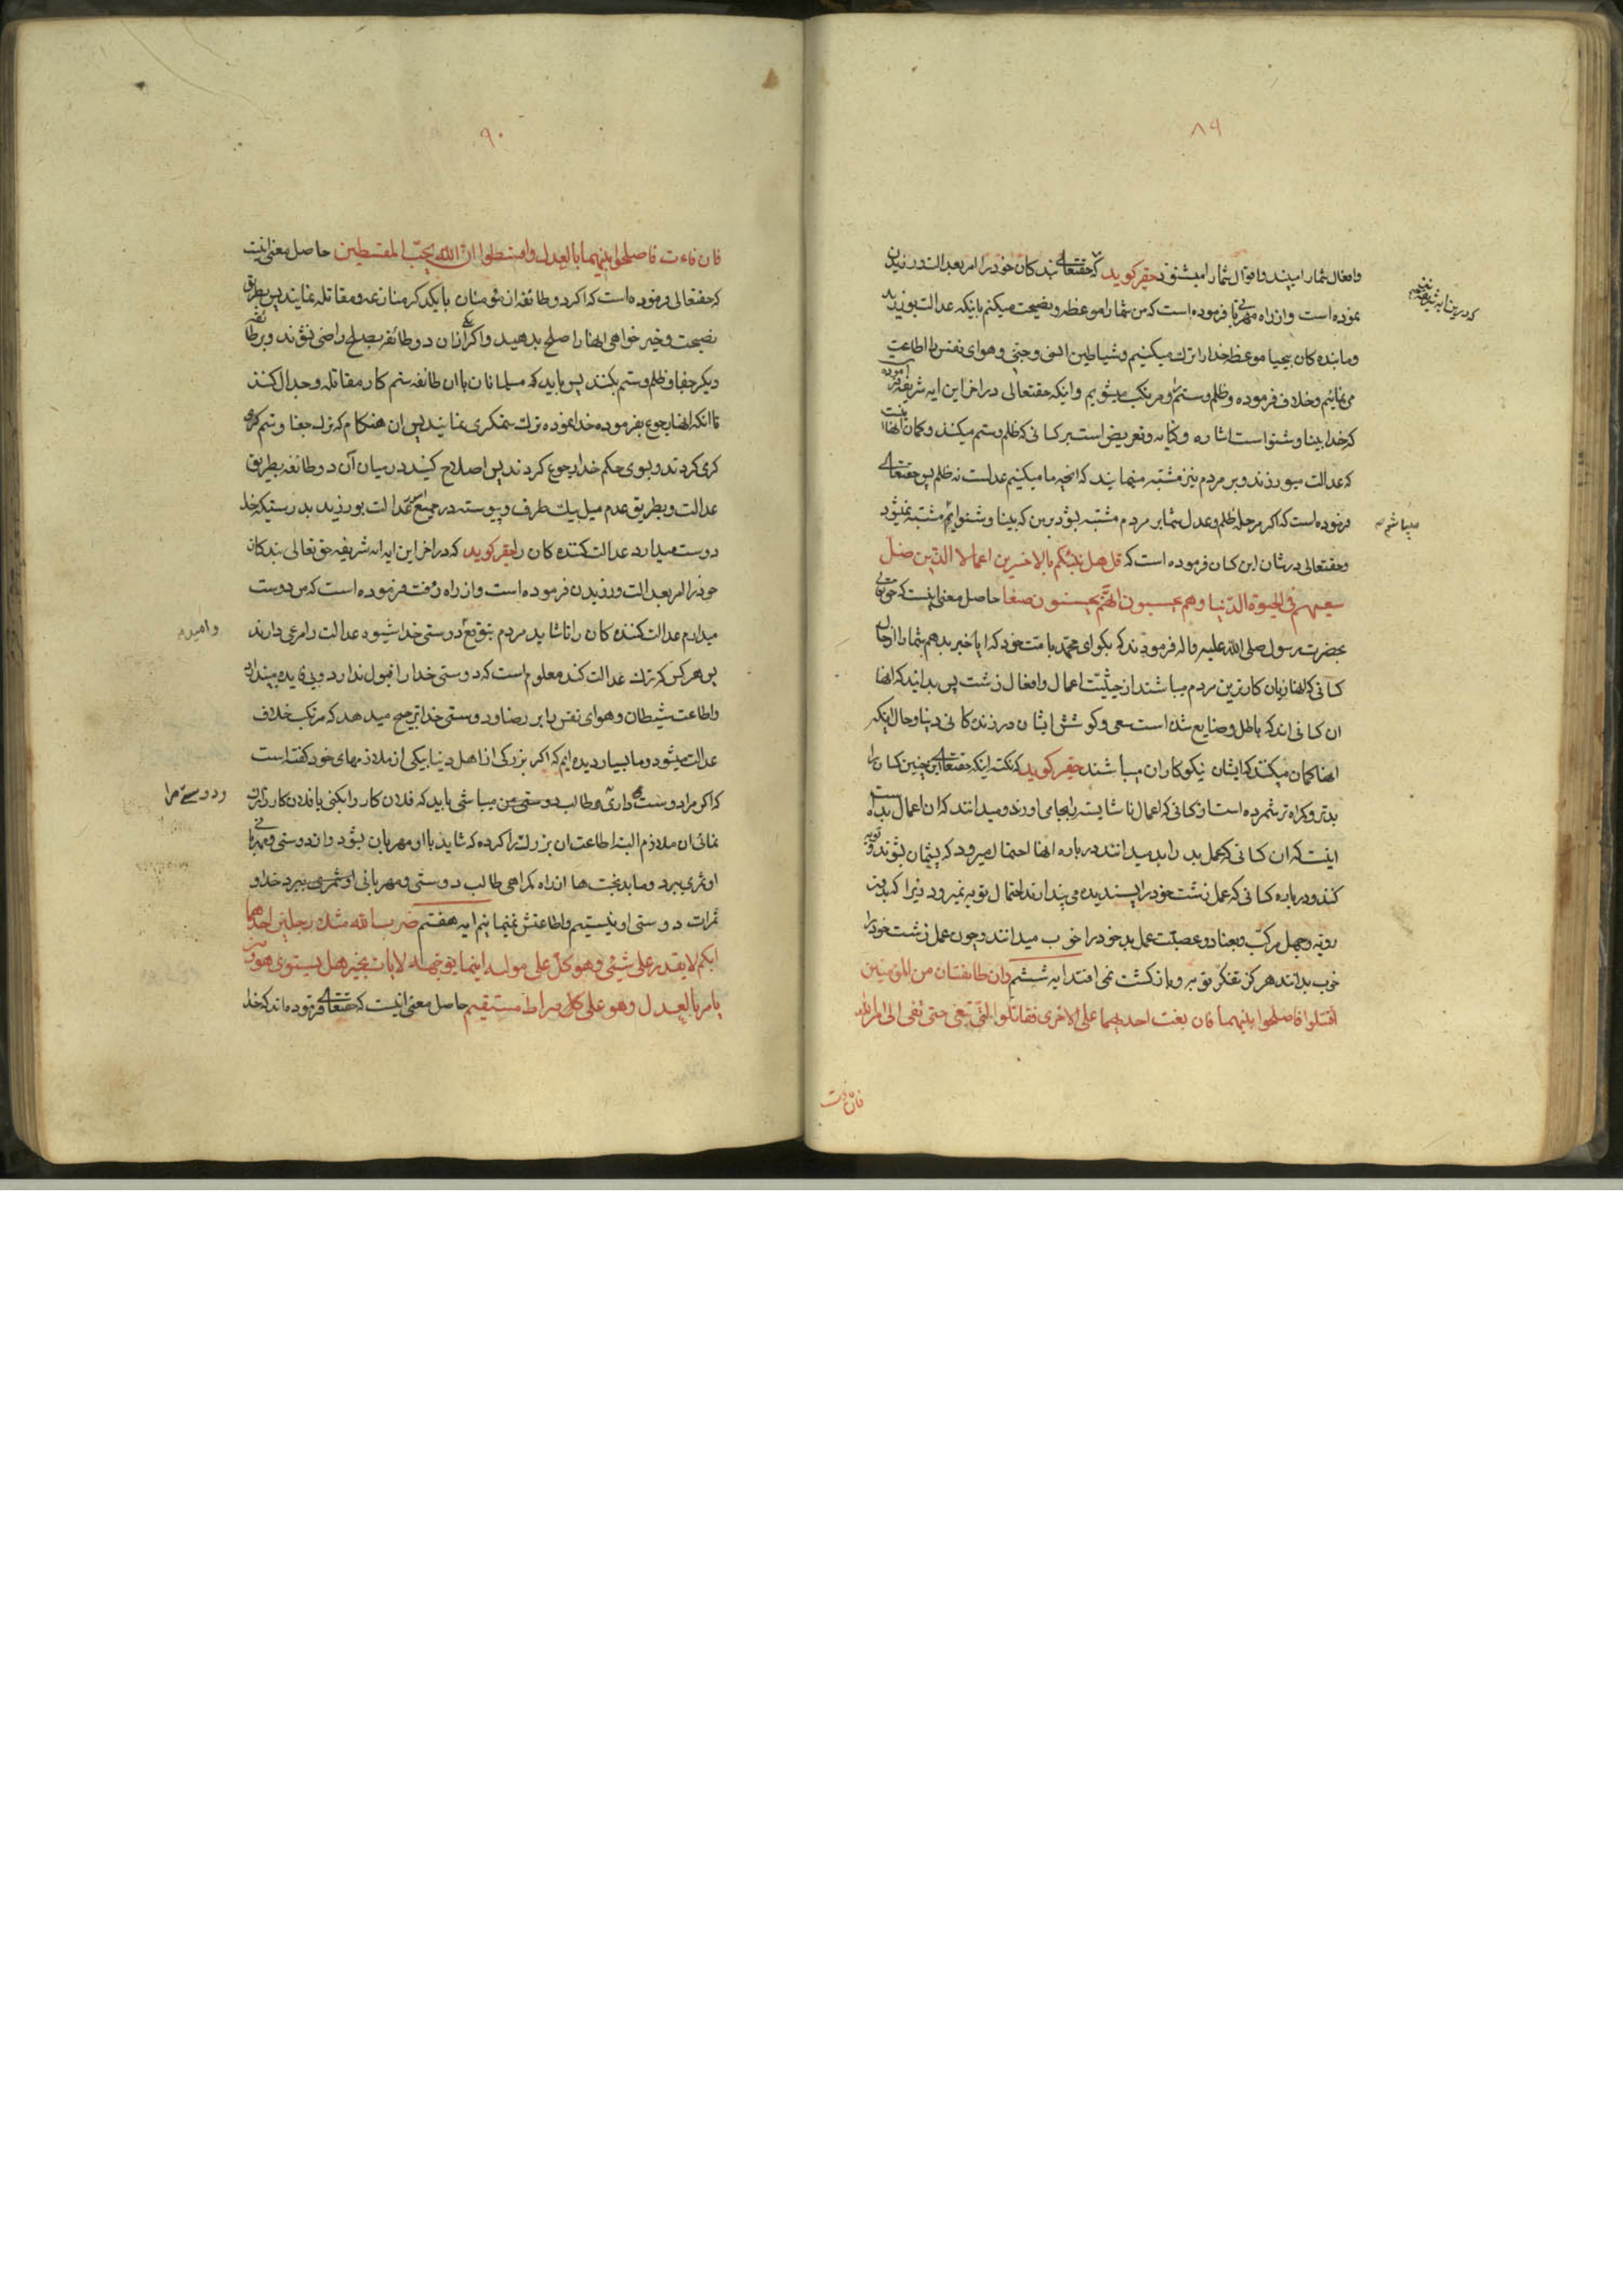 ۸۹
وافعال شما را میبیند واقوال شما را میشنود حقیر کوید که حقتعالی بندکان خود را امر بعدالت ورزیدن
نموده است وازراه مهربانی فرموده است که من شما را موعظه ونصیحت میکنم باینکه عدالت بورزید
وما بنده کان بیحیا موعظه خدا را ترك میکنیم وشیاطین انسی وجنی وهوای نفس را اطاعت
می نمائیم وخلاف فرموده وظلم وستم را مرتکب میشویم واینکه حقتعالی در اخر این ایه شریفه فرموده
که خدا بینا وشنوا است اشاره وکنایه وتعریض است بر کسانی که ظلم وستم میکنند وکمان انها اینست
که عدالت میورزند وبر مردم نیز مشتبه مینمایند که انچه ما میکنیم عدلست نه ظلم پس حقتعالی
فرموده است که اکر مرحله ظلم وعدل شما بر مردم مشتبه بشود بر من که بینا وشنوایم مشتبه نمیشود
میباشم
وحقتعالی در شان این کسان فرموده است که قل هل ننبئکم بالاخسرین اعمالا الذین ضل
سعیهم فی الحیوة الدنیا وهم یحسبون انهم یحسنون صنعا حاصل معنی اینست که حقتعالی
بحضرت رسول صلی الله علیه واله فرمودند که بکو ای محمد بامت خود که ایا خبر بدهم شما را از حال
کسانی که انها زیان کارترین مردم میباشند از حیثیت اعمال وافعال زشت پس بدانید که انها
ان کسانی اند که باطل وضایع شده است سعی وکوشش ایشان در زندکانی دنیا وحال اینکه
انها کمان میکنند که ایشان نیکوکاران میباشند حقیر کوید که نکته اینکه حقتعالی این چنین کسان را
بدتر وکمراه تر شمرده است از کسانی که اعمال ناشایسته را بجا می اورند ومیدانند که ان اعمال بد است
اینست که ان کسانی که عمل بد را بد میدانند در باره انها احتمال میرود که پشیمان بشوند وتوبه
کنند ودر باره کسانی که عمل زشت خود را پسندیده می پندارند احتمال توبه نمیرود زیرا که بدین
رویه وجهل مرکب وبعناد وعصبیت عمل بد خود را خوب میدانند وچون عمل زشت خود را
خوب بدانند هرکز بتفکر توبه وبازکشت نمی افتد ایه ششم وان طائفتان من المؤمنین
اقتتلوا فاصلحوا بینهما فان بغت احدیهما علی الاخری فقاتلوا التی تبغی حتی تفئ الی امر الله
فان فائت
۹۰
فان فاءت فاصلحوا بینهما بالعدل واقسطوا ان الله یحب المقسطین حاصل معنی اینست
که حقتعالی فرموده است که اکر دو طائفه از مؤمنان با یکدیکر منازعه ومقاتله نمایند پس بطریق
نصیحت وخیر خواهی انها را صلح بدهید واکر یکی از ان دو طائفه بصلح راضی نشوند وبر طائفه
دیکر جفا وظلم وستم بکنند پس باید که مسلمانان با ان طائفه ستم کار مقاتله وجدال کنند
تا انکه انها رجوع بفرموده خدا نموده ترك ستمکری نمایند پس ان هنکام که ترك جفا وستم
کری کردند وبسوی حکم خدا رجوع کردند پس اصلاح کنید در میان آن دو طائفه بطریق
عدالت وبطریق عدم میل بیك طرف وپیوسته در جمیع امور عدالت بورزید بدرستیکه خدا
دوست میدارد عدالت کننده کان را حقیر کوید که در اخر این ایه شریفه حق تعالی بندکان
خود را امر بعدالت ورزیدن فرموده است وازراه رافت فرموده است که من دوست
میدارم عدالت کننده کان را تا شاید مردم بتوقع دوستی خدا شیوه عدالت را مرعی دارند
وامید
پس هر کس که ترك عدالت کند معلوم است که دوستی خدا را قبول ندارد وبی فایده میپندارد
واطاعت شیطان وهوای نفس را بر رضا ودوستی خدا ترجیح میدهد که مرتکب خلاف
عدالت میشود وما بسیار دیده ایم که اکر بزرکی از اهل دنیا بیکی از ملازمهای خود کفته است
که اکر مرا دوست میداری وطالب دوستی من میباشی باید که فلان کار را بکنی یا فلان کار را ترك
ودوستی مرا
نمائی ان ملازم البته اطاعت ان بزرك را کرده که شاید با او مهربان بشود واز دوستی ومهربانی
او ثمری ببرد وما بدبختها از راه کمراهی طالب دوستی ومهربانی او
ثمرات دوستی او نیستیم واطاعتش نمینمائیم ایه هفتم ضرب الله مثلا رجلین احدهما
ابکم لا یقدر علی شیئ وهو کل علی مولیه اینما یوجهه لا یات بخیر هل یستوی هو ومن
یامر بالعدل وهو علی صراط مستقیم حاصل معنی اینست که حقتعالی فرموده اند که خدا